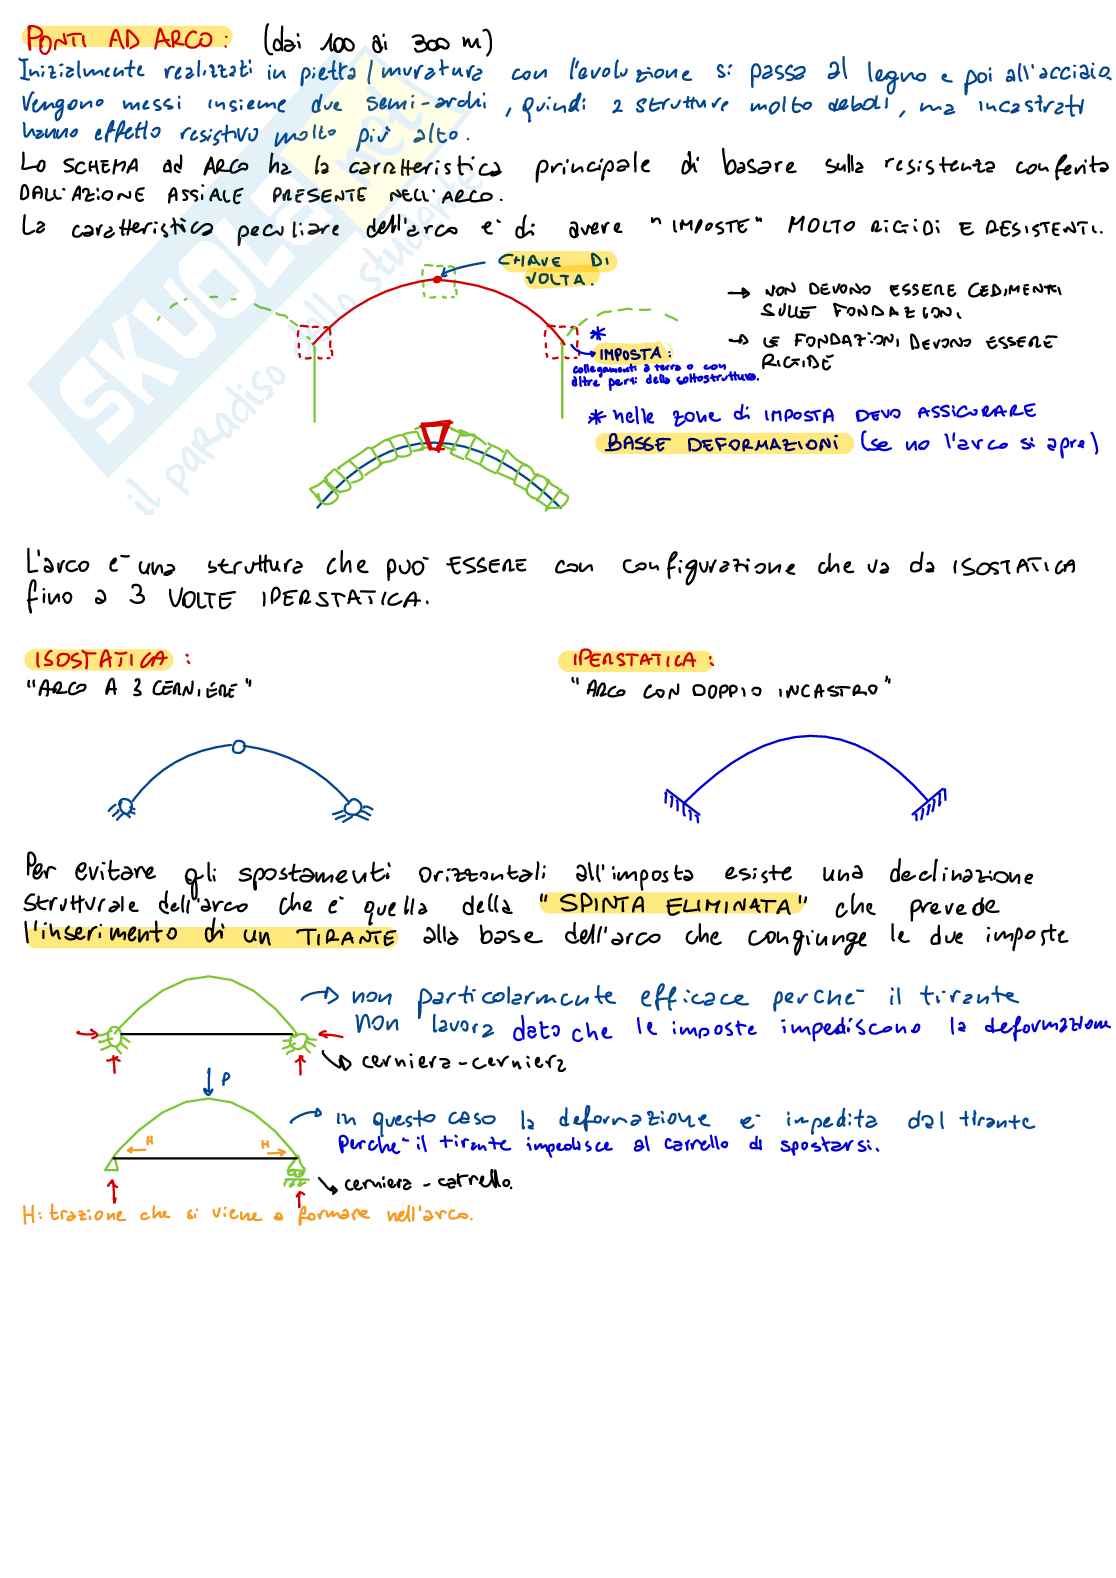 PONTI AD ARCO: (dai 100 ai 300 m)
Inizialmente realizzati in pietra/muratura con l'evoluzione si passa al legno e poi all'acciaio
Vengono messi insieme due semi-archi, quindi 2 strutture molto deboli, ma incastrati
hanno effetto resistivo molto più alto.
Lo SCHEMA ad ARCO ha la caratteristica principale di basare sulla resistenza conferita
DALL'AZIONE ASSIALE PRESENTE NELL'ARCO.
La caratteristica peculiare dell'arco è di avere "IMPOSTE" MOLTO RIGIDI E RESISTENTI.
CHIAVE DI
VOLTA.
→ NON DEVONO ESSERE CEDIMENTI
SULLE FONDAZIONI.
→ LE FONDAZIONI DEVONO ESSERE
RIGIDE
*
→ IMPOSTA:
collegamenti a terra o con
altre parti della sottostruttura.
* nelle zone di IMPOSTA DEVO ASSICURARE
BASSE DEFORMAZIONI (se no l'arco si apre)
L'arco è una struttura che può ESSERE con configurazione che va da ISOSTATICA
fino a 3 VOLTE IPERSTATICA.
ISOSTATICA:
"ARCO A 3 CERNIERE"
IPERSTATICA:
"ARCO CON DOPPIO INCASTRO"
Per evitare gli spostamenti orizzontali all'imposta esiste una declinazione
strutturale dell'arco che è quella della "SPINTA ELIMINATA" che prevede
l'inserimento di un TIRANTE alla base dell'arco che congiunge le due imposte
→ non particolarmente efficace perchè il tirante
non lavora dato che le imposte impediscono la deformazione
→ cerniera-cerniera
P
→ in questo caso la deformazione è impedita dal tirante
Perchè il tirante impedisce al carrello di spostarsi.
H
H
→ cerniera-carrello.
H: trazione che si viene a formare nell'arco.
SKUOLA.net
il paradiso dello studente